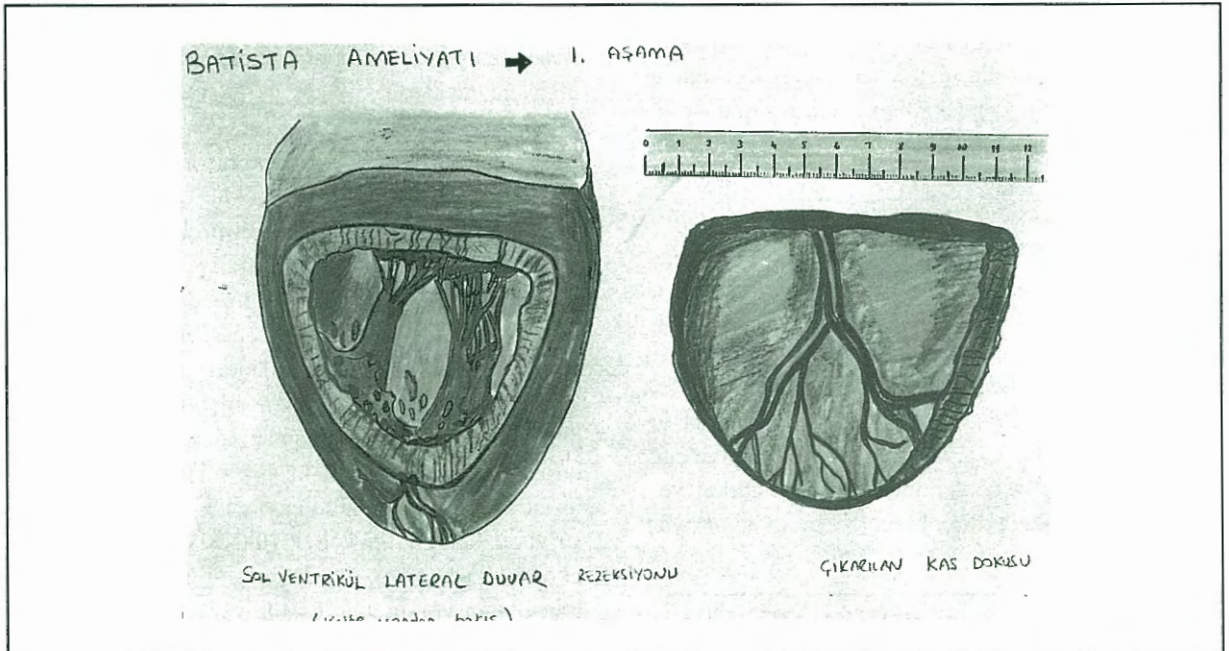 BATİSTA AMELİYATI ➡ 1. AŞAMA
0 1 2 3 4 5 6 7 8 9 10 11 12
SOL VENTRİKÜL LATERAL DUVAR REZEKSİYONU
ÇIKARILAN KAS DOKUSU